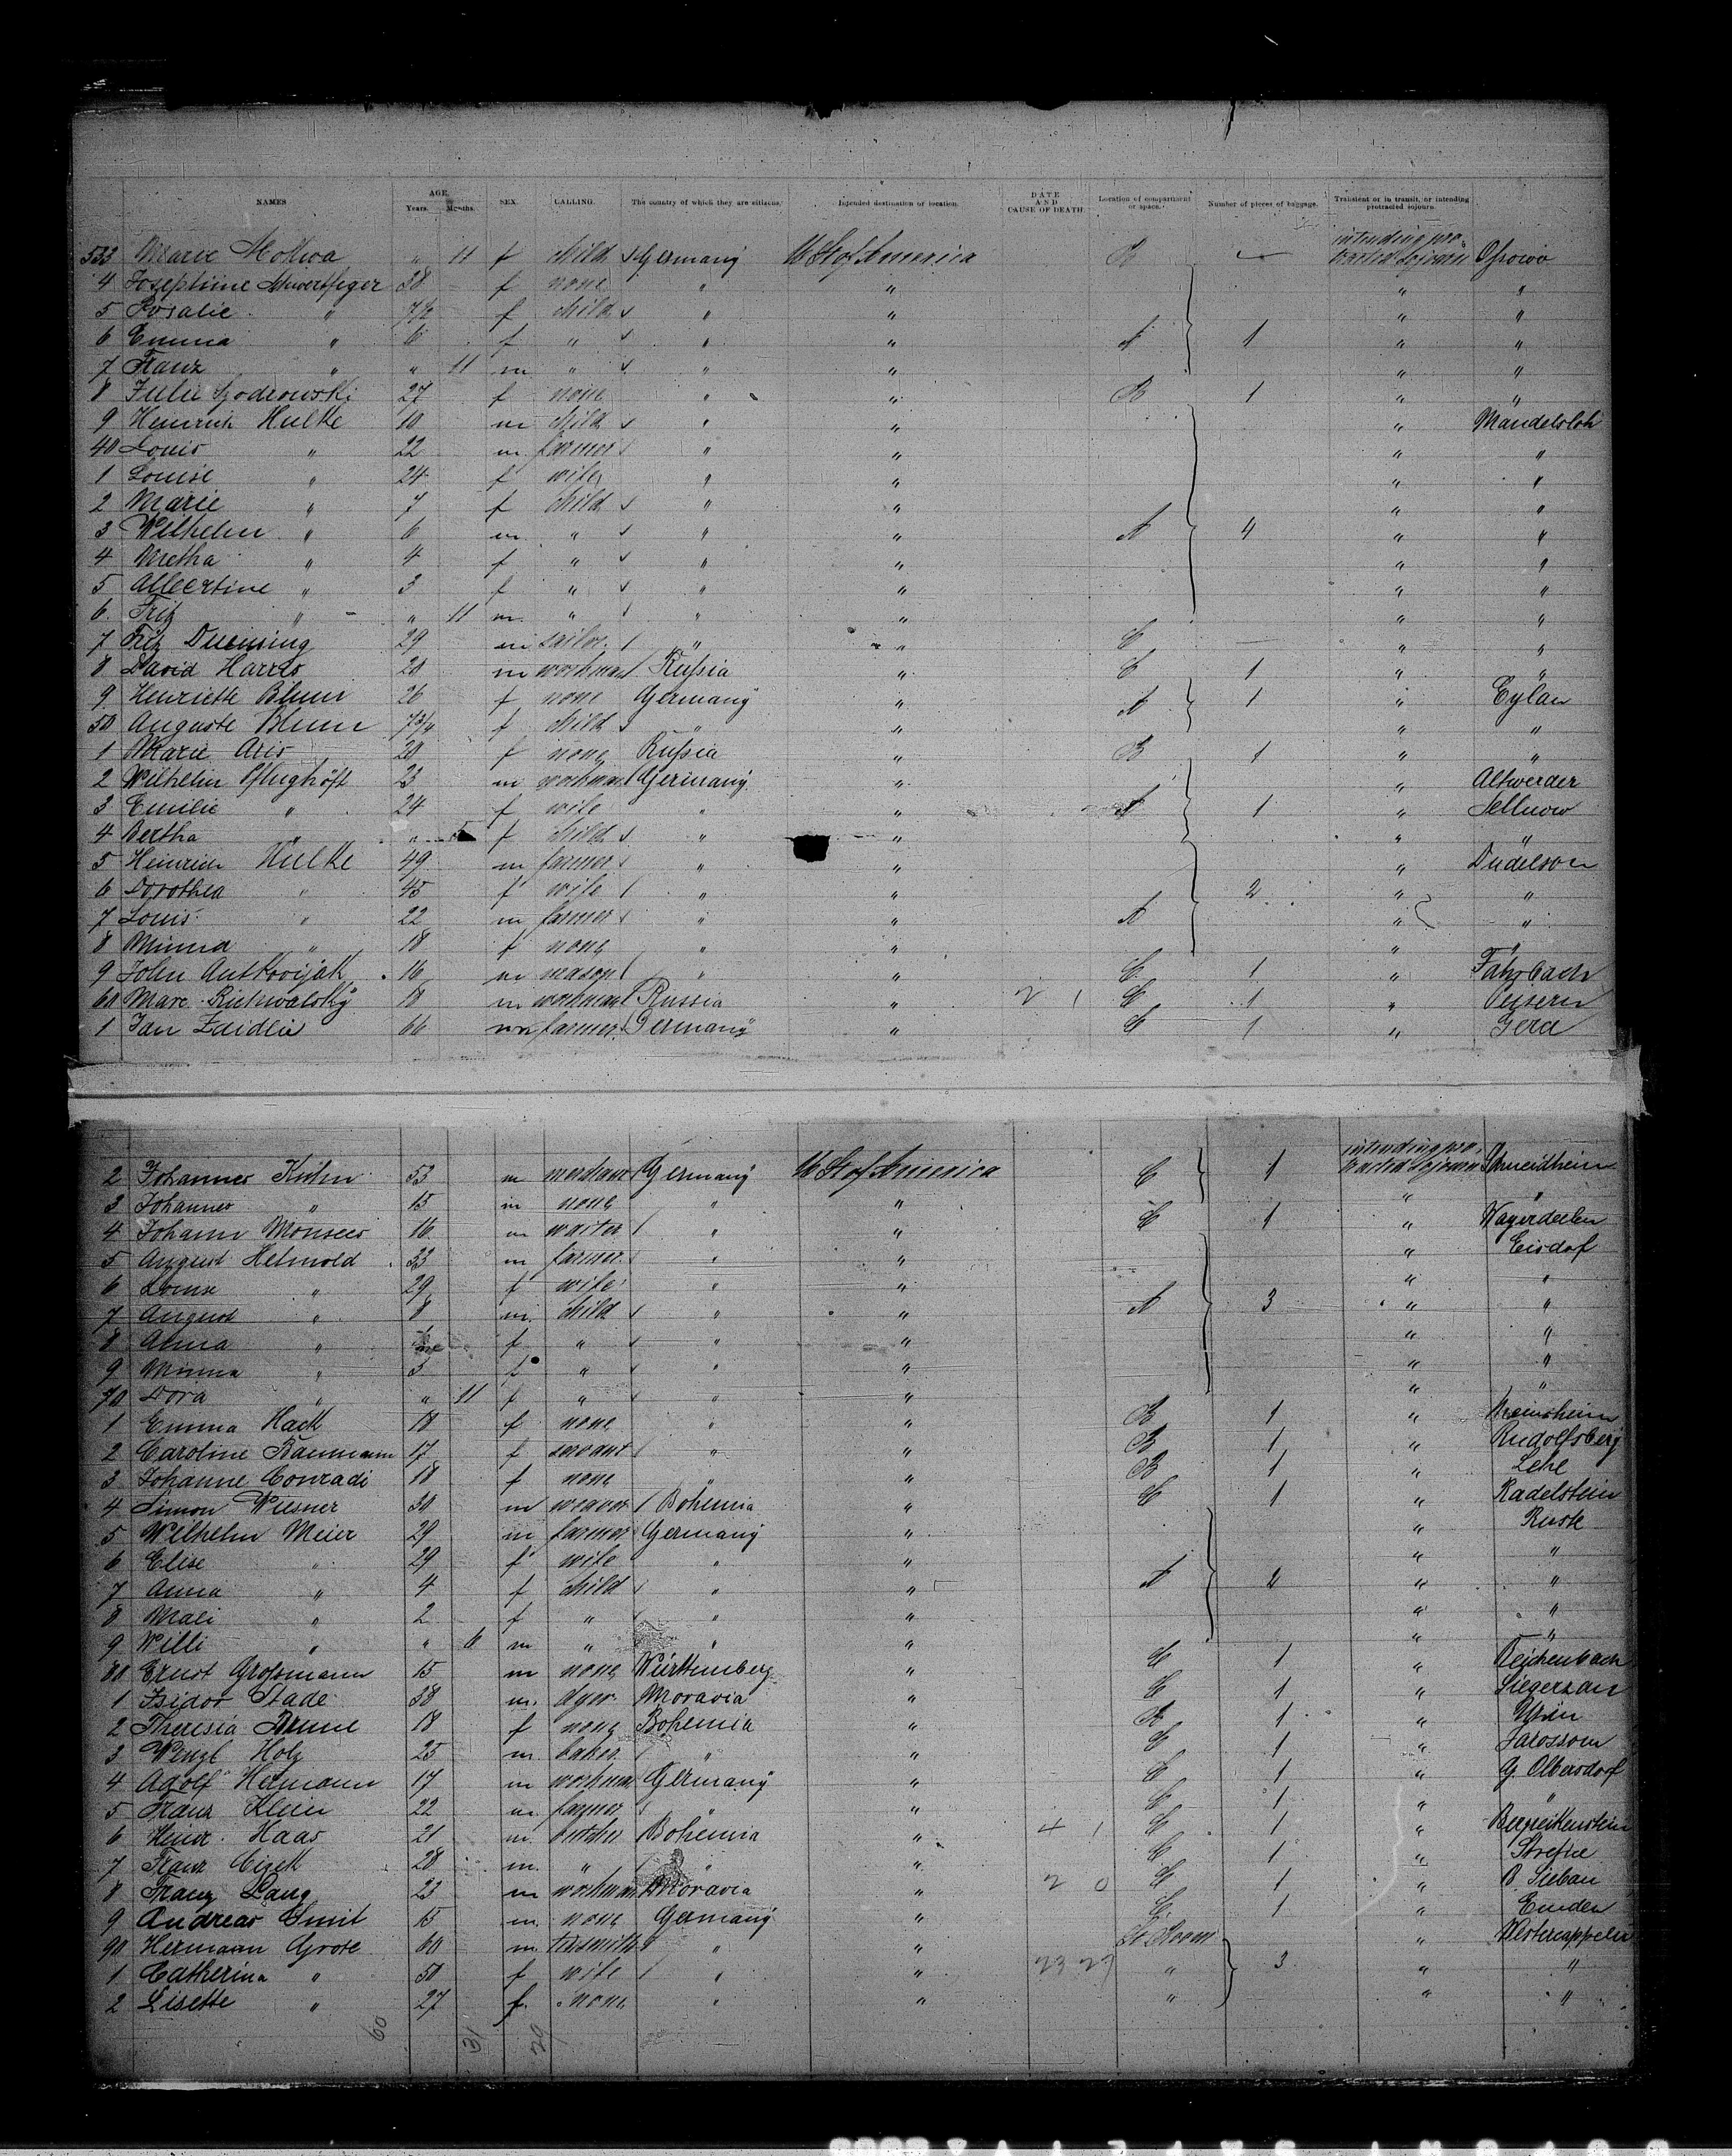 NAMES AGE. Years. Months. SEX. CALLING. The country of which they are citizens. Intended destination or location. DATE AND CAUSE OF DEATH. Location of compartment or space. Number of pieces of baggage. Transient or in transit, or intending protracted sojourn.
533 Marie " 11 f child Germany U St of America B — intending protracted sojourn
4 Josephine Schwertfeger 38 f none " " " "
5 Rosalie " 7½ f child " " " "
6 Emma " 6 f " " " A 1 " "
7 Franz " " 11 m " " " " "
8 Julie 27 f none " " B 1 " "
9 Heinrich Hulke 10 m child " " " Mandelsloh
40 Louis " 22 m farmer " " " "
1 Louise " 24 f wife " " " "
2 Marie " 7 f child " " " "
3 Wilhelm " 6 m " " " A 4 " "
4 Metha " 4 f " " " " "
5 Albertine " 3 f " " " " "
6 Fritz " " 11 m " " " " "
7 Fritz 29 m " " C — " "
8 David Harris 20 m workman Russia " C 1 " "
9 Henriette Blum 26 f none Germany " A 1 " Eylau
50 Auguste Blum 7¾ f child " " " "
1 Marie Aris 20 f none Russia " B 1 " "
2 Wilhelm Pflughöft 23 m workman Germany " " Altwerder
3 Emilie " 24 f wife " " A 1 " Sellnow
4 Bertha " " f child " " " "
5 Heinrich Hulke 49 m farmer " " "
6 Dorothea " 45 f wife " " 2 " "
7 Louis " 22 m farmer " " A " "
8 Minna " 18 f none " " " "
9 John 16 m mason " " C 1 " Fahrbach
60 Marc 18 m workman Russia " 2 1 C 1 " Peysern
1 Jan 66 m farmer Germany " C 1 " Gera
2 Johannes Kuhn 53 m Germany U St of America C 1 intending protracted sojourn Schneidheim
3 Johannes " 15 m none " " " "
4 Johann Monsees 16 m waiter " " C 1 "
5 August Helmold 33 m farmer " " " Eisdorf
6 Louise " 29 f wife " " " "
7 August " 8 m child " " A 3 " "
8 Anna " f " " " " "
9 Minna " 5 f " " " " "
70 Dora " " 11 f " " " " "
1 Emma Hack 18 f none " " B 1 "
2 Caroline Baumann 17 f servant " " B 1 " Rudolfsberg
3 Johanne Conradi 18 f none " " B 1 " Lehe
4 Simon Wiesner 30 m weaver Bohemia " C 1 " Radelstein
5 Wilhelm Meier 29 m farmer Germany " "
6 Elise " 29 f wife " " " "
7 Anna " 4 f child " " A " "
8 Mali " 2 f " " " " "
9 Willi " " 6 m " " " " "
80 Ernst Großmann 15 m none Württemberg " C 1 "
1 Isidor Stade 38 m dyer Moravia " C 1 "
2 Theresia 18 f none Bohemia " 1 "
3 Wenzl Holz 25 m baker " " C 1 "
4 Adolf 17 m workman Germany " C 1 " G. Olbersdorf
5 Franz Klein 22 m farmer " " C 1 " "
6 Heinr. Haas 21 m butcher Bohemia " 4 1 C 1 "
7 Franz Cizek 28 m " " " C 1 "
8 Franz Lang 23 m workman Moravia " 2 0 C 1 "
9 Andreas Smit 15 m none Germany " C 1 " Emden
90 Hermann Grote 60 m tinsmith " " St Room " Westercappeln
1 Catherina " 50 f wife " " 23 27 " 3 " "
2 Lisette " 27 f none " " " " "
60 31 29